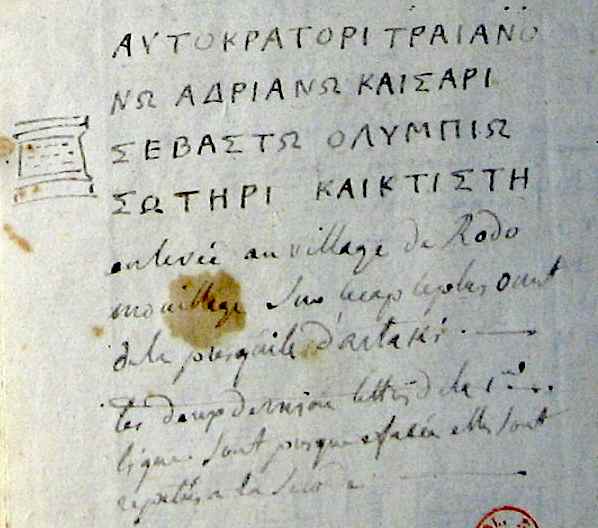 ΑΥΤΟΚΡΑΤΟΡΙ ΤΡΑΙΑΝΟ
ΝΩ ΑΔΡΙΑΝΩ ΚΑΙΣΑΡΙ
ΣΕΒΑΣΤΩ ΟΛΥΜΠΙΩ
ΣΩΤΗΡΙ ΚΑΙΚΤΙΣΤΗ
enlevée au village de Rodo
mouillage sur le cap
de la presquile d'artaki
les deux dernière lettres de la 1ere
ligne sont presque efacée elles sont
repetées a la